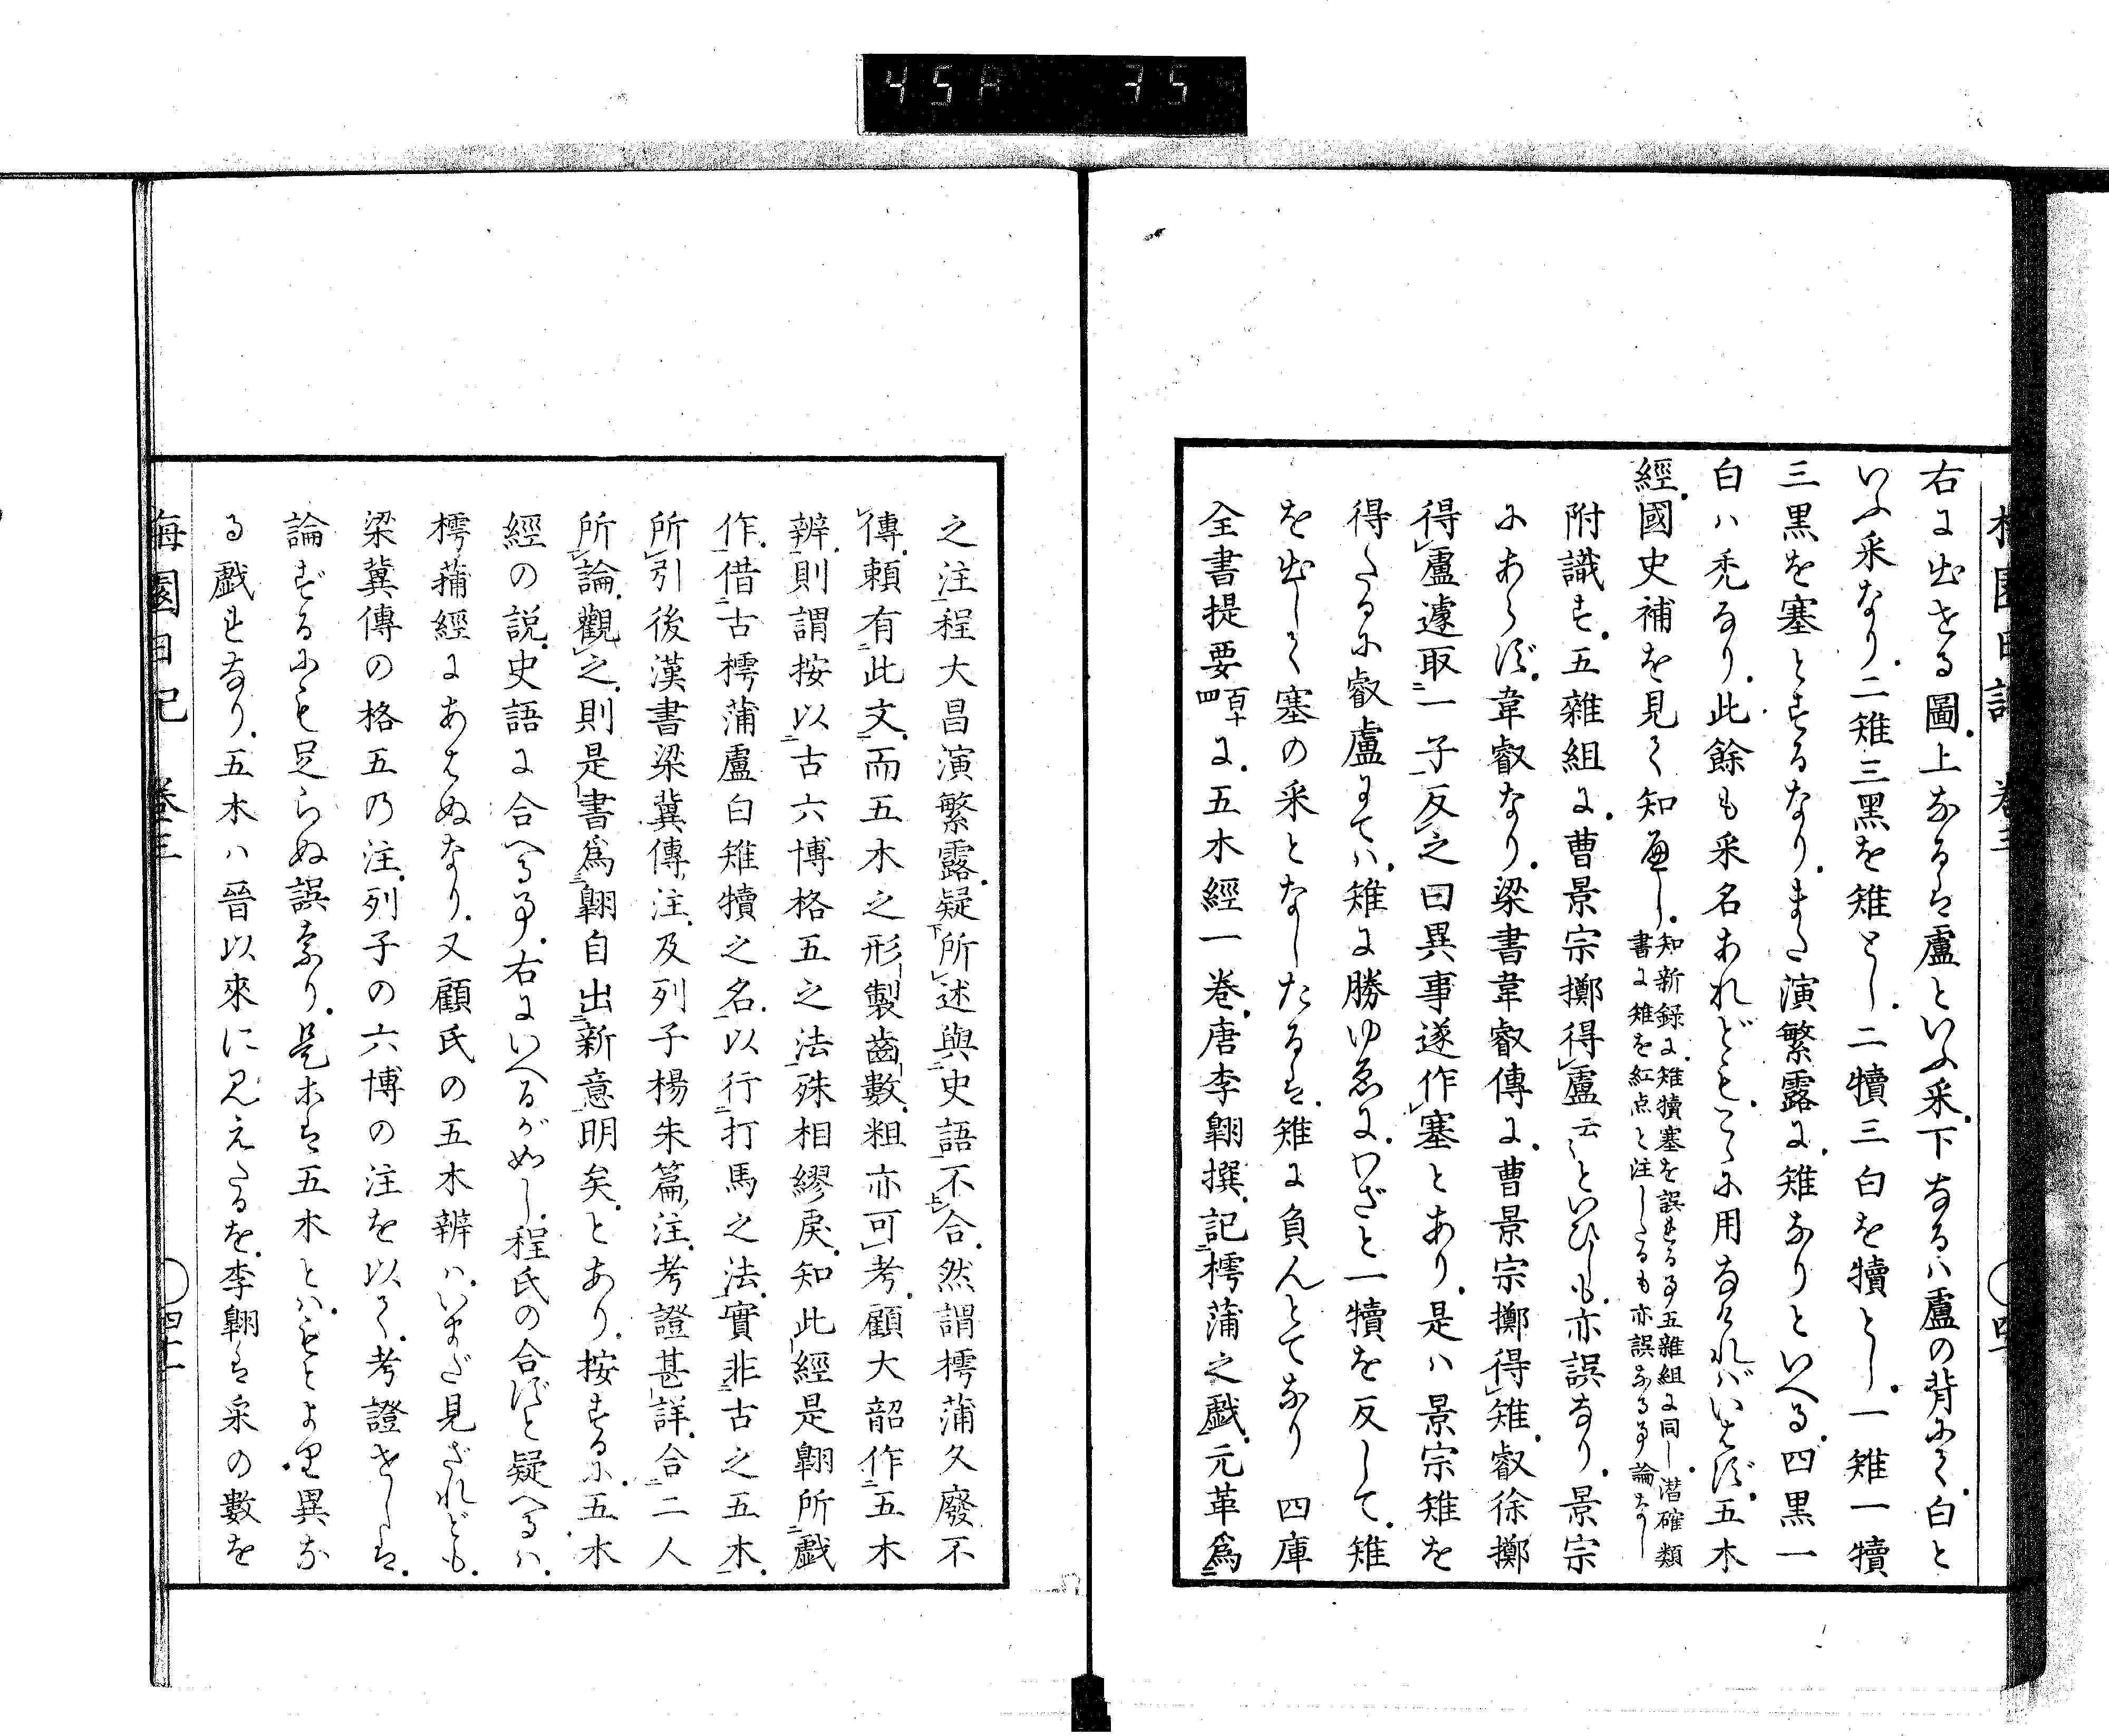 45A 75
梅園日記 巻三
右に出せる圖。上なるは盧といふ采。下なるハ盧の背にて。白と
いふ采なり。二雉三黑を雉とし。二犢三白を犢とし。一雉一犢
三黒を塞とするなり。また演繁露に。雉なりといへる。四黒一
白ハ禿なり。此餘も采名あれども。こゝに用なければいはず。五木
經。國史補を見て知べし。知新録に。雉犢塞を誤せる事五雜組に同し。潜確類
書に雉を紅点と注したるも亦誤なる事論なし
附識す。五雜組に。曹景宗擲得盧云〻といひしも。亦誤なり。景宗
にあらず。韋叡なり。梁書韋叡傳に。曹景宗擲得雉。叡徐擲
得盧遽取一子反之曰異事遂作塞とあり。是ハ景宗雉を
得たるに叡盧にてハ。雉に勝ゆゑに。わざと一犢を反して。雉
を出して塞の采となしたるは。雉に負んとてなり 四庫
全書提要百十四に。五木經一卷。唐李翺撰。記樗蒲之戲。元革爲
之注。程大昌演繁露。疑所述與史語不合。然謂樗蒲久廢不
傳。賴有此文。而五木之形製齒數。粗亦可考。顧大韶作五木
辨。則謂按以古六博格五之法。殊相繆戾。知此經是翺所戲
作。借古樗蒲盧白雉犢之名。以行打馬之法。實非古之五木。
所引後漢書梁冀傳注。及列子楊朱篇注。考證甚詳。合二人
所論。觀之。則是書爲翺自出新意明矣。とあり。按するに。五木
經の説。史語に合へる事。右にいへるが如し。程氏の合ずと疑へるハ。
樗蒲經にあはぬなり。又顧氏の五木辨ハ。いまだ見ざれども。
梁冀傳の格五の注。列子の六博の注を以て。考證せしは。
論ずるにも足らぬ誤なり。是等は五木とハ。もとより異な
る戲となり。五木ハ晉以來に見えたるを。李翺は采の數を
梅園日記 巻三